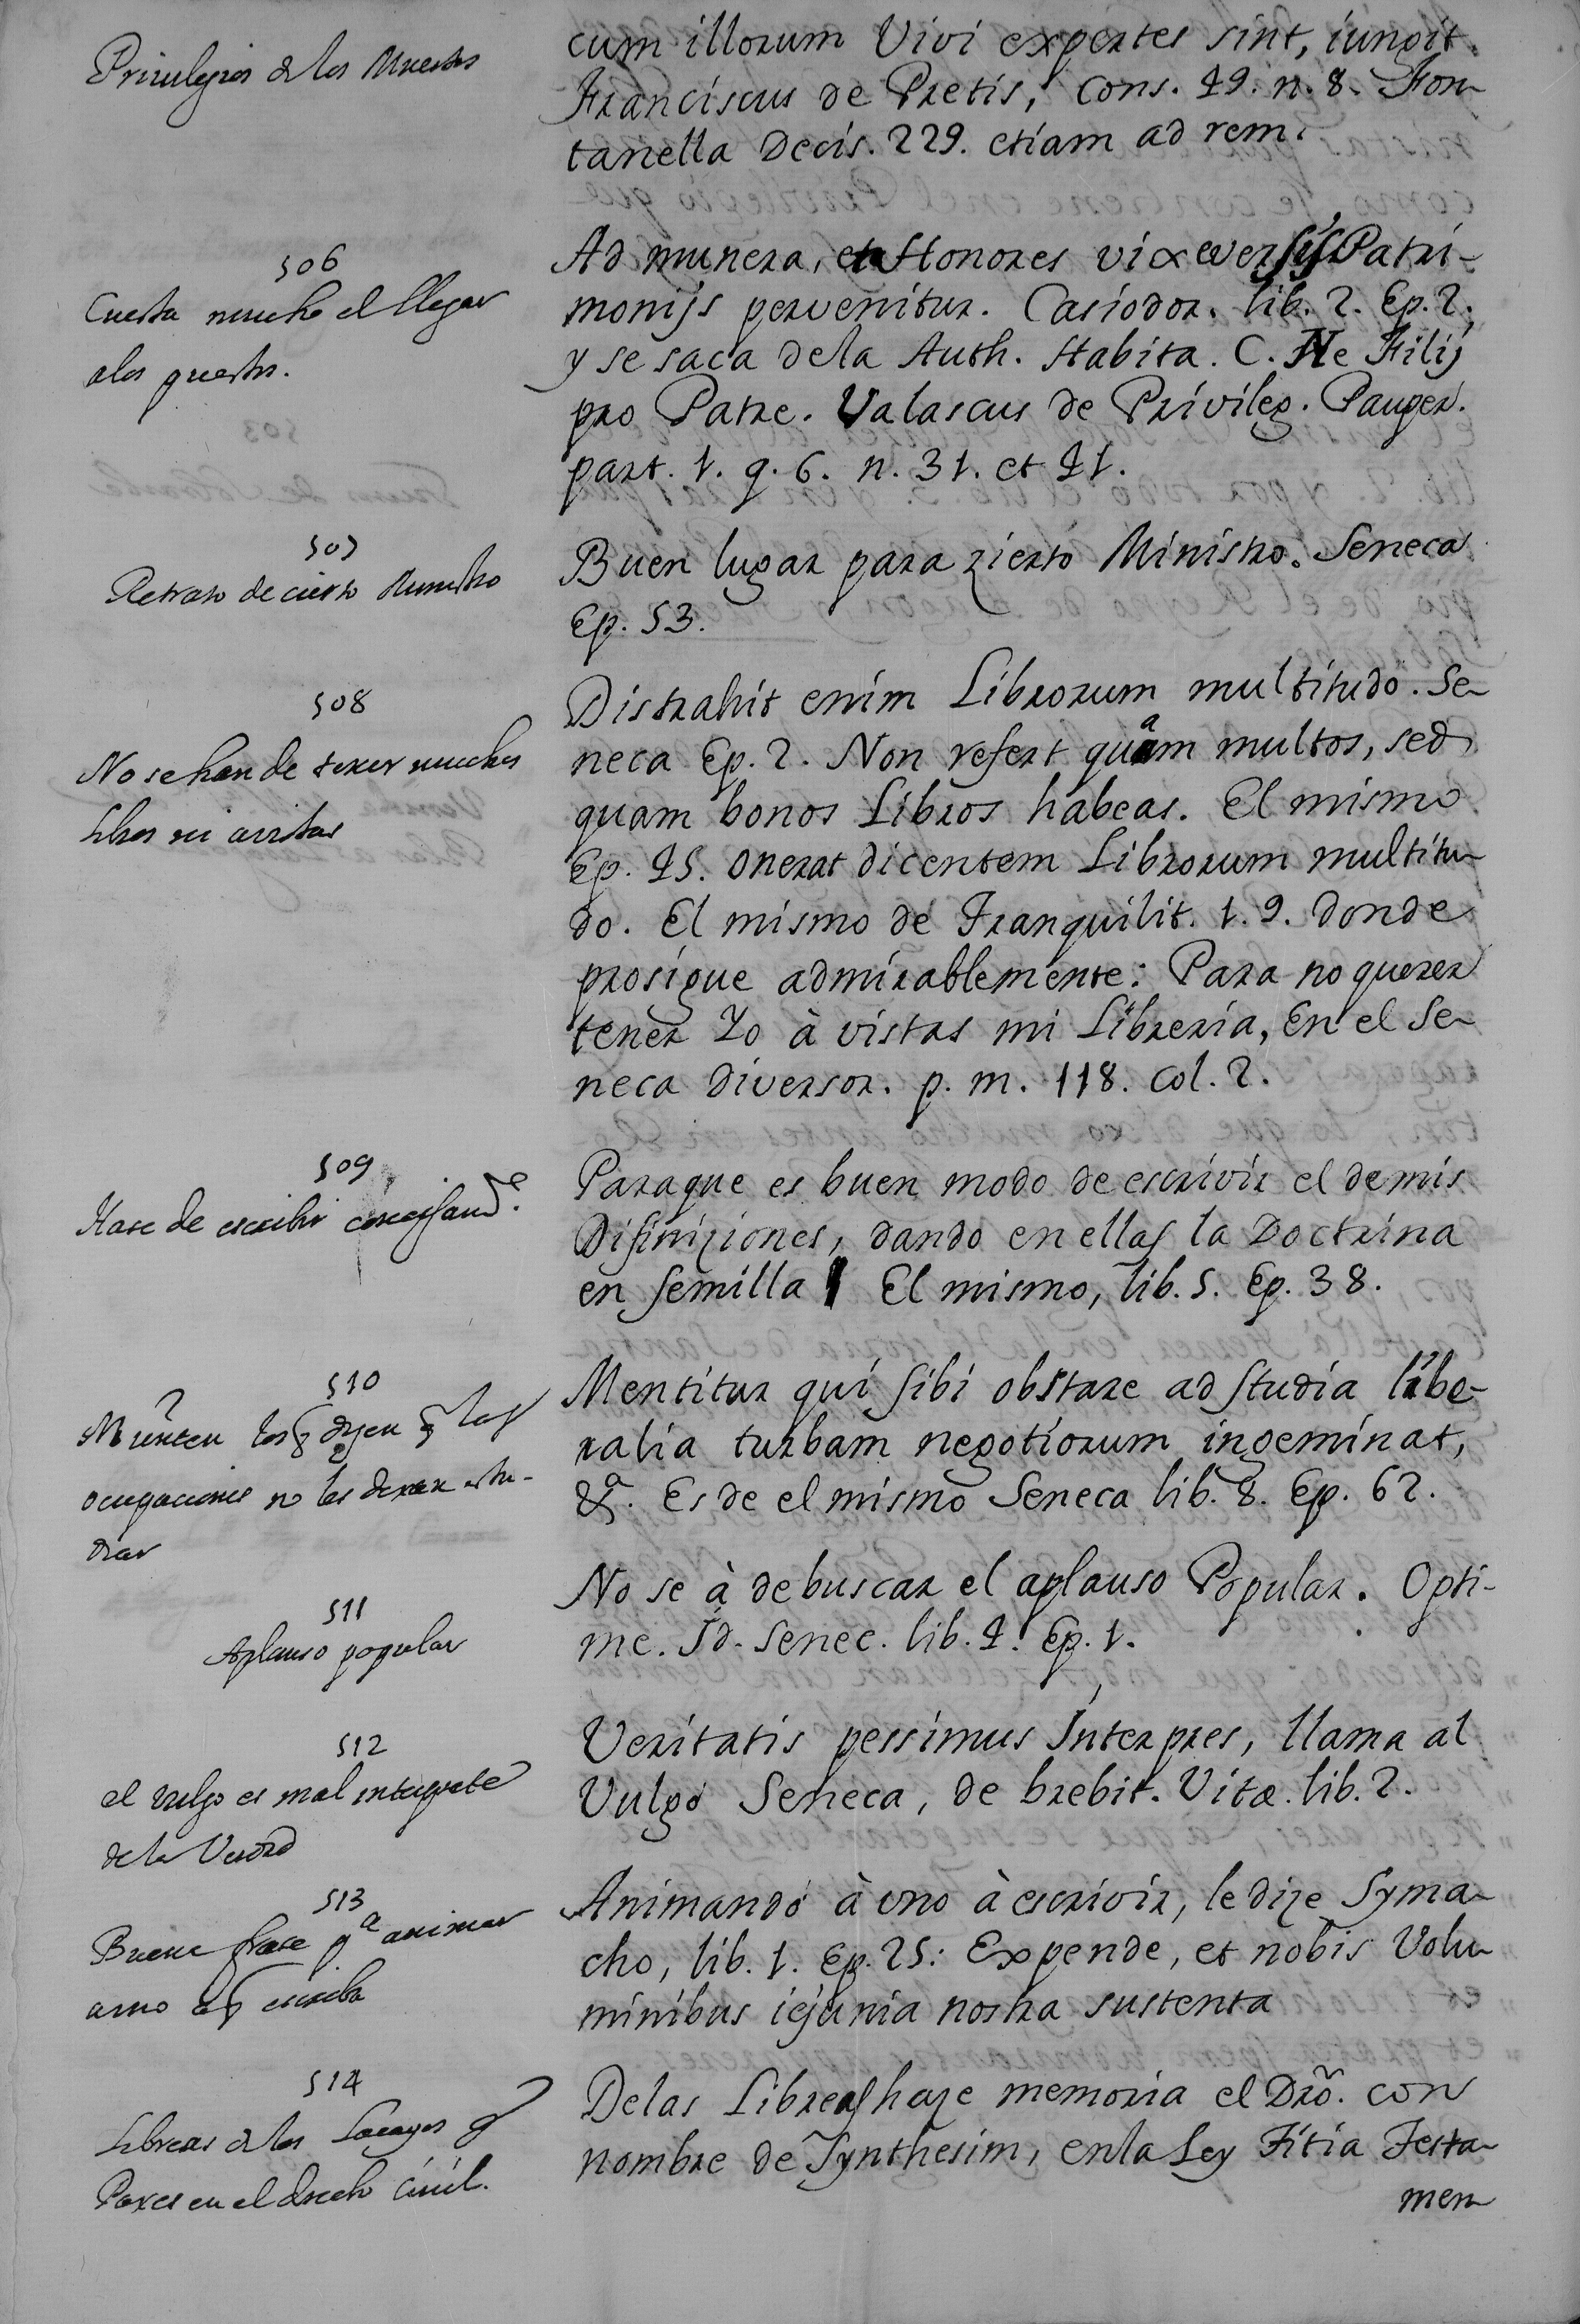 Privilegios de los Muertos
cum illorum Vivi expertes sint, iungit
Franciscus de Pretis, Cons. 49. n. 8. Fon-
tanella Decis. 229. etiam ad rem.
506
Cuesta mucho el llegar
a los puestos.
Ad munera, et Honores vix eversis Patri-
monijs pervenitur. Casiodor. lib. 2. Ep. 2.
y se saca dela Auth. Habita. C. Ne Filij
pro Patre. Valascus de Privileg. Pauper.
part. 1. q. 6. n. 31. et 41.
507
Retrato de cierto Ministro
Buen lugar para zierto Ministro. Seneca
Ep. 53.
508
No se han de tener muchos
libros ni a vistas
Distrahit enim Librorum multitudo. Se-
neca Ep. 2. Non refert quam multos, sed
quam bonos Libros habeas. El mismo
Ep. 45. onerat dicentem Librorum multitu-
do. El mismo de Tranquilit. 1. 9. donde
prosigue admirablemente: Para no querer
tener Yo à vistas mi Libreria, En el Se-
neca diversor. p. m. 118. col. 2.
509
Hase de escribir
Paraque es buen modo de escrivir el de mis
Difiniziones, dando en ellas la Doctrina
en semilla El mismo, lib. 5. Ep. 38.
510
Mienten los q dizen q las
ocupaciones no les dexan estu-
diar
Mentitur qui sibi obstare ad studia libe-
ralia turbam negotiorum ingeminat,
&a. Es de el mismo Seneca lib. 8. Ep. 62.
511
Aplauso popular
No se à de buscar el aplauso Popular. Opti-
me. Id. Senec. lib. 4. Ep. 1.
512
el vulgo es mal interprete
de la Verdad
Veritatis pessimus Interpres, llama al
Vulgo Seneca, de brebit. Vitæ. lib. 2.
513
Buena frase pa animar
a uno a q escriba
Animando à uno à escrivir, le dize Syma-
cho, lib. 1. Ep. 25: Expende, et nobis Volu-
minibus iejunia nostra sustenta
514
Libreas de los Lacayos y
Paxes en el drecho Civil.
Delas Libreas haze memoria el Dro. con
nombre de Synthesim, en la Ley Titia Testa-
men